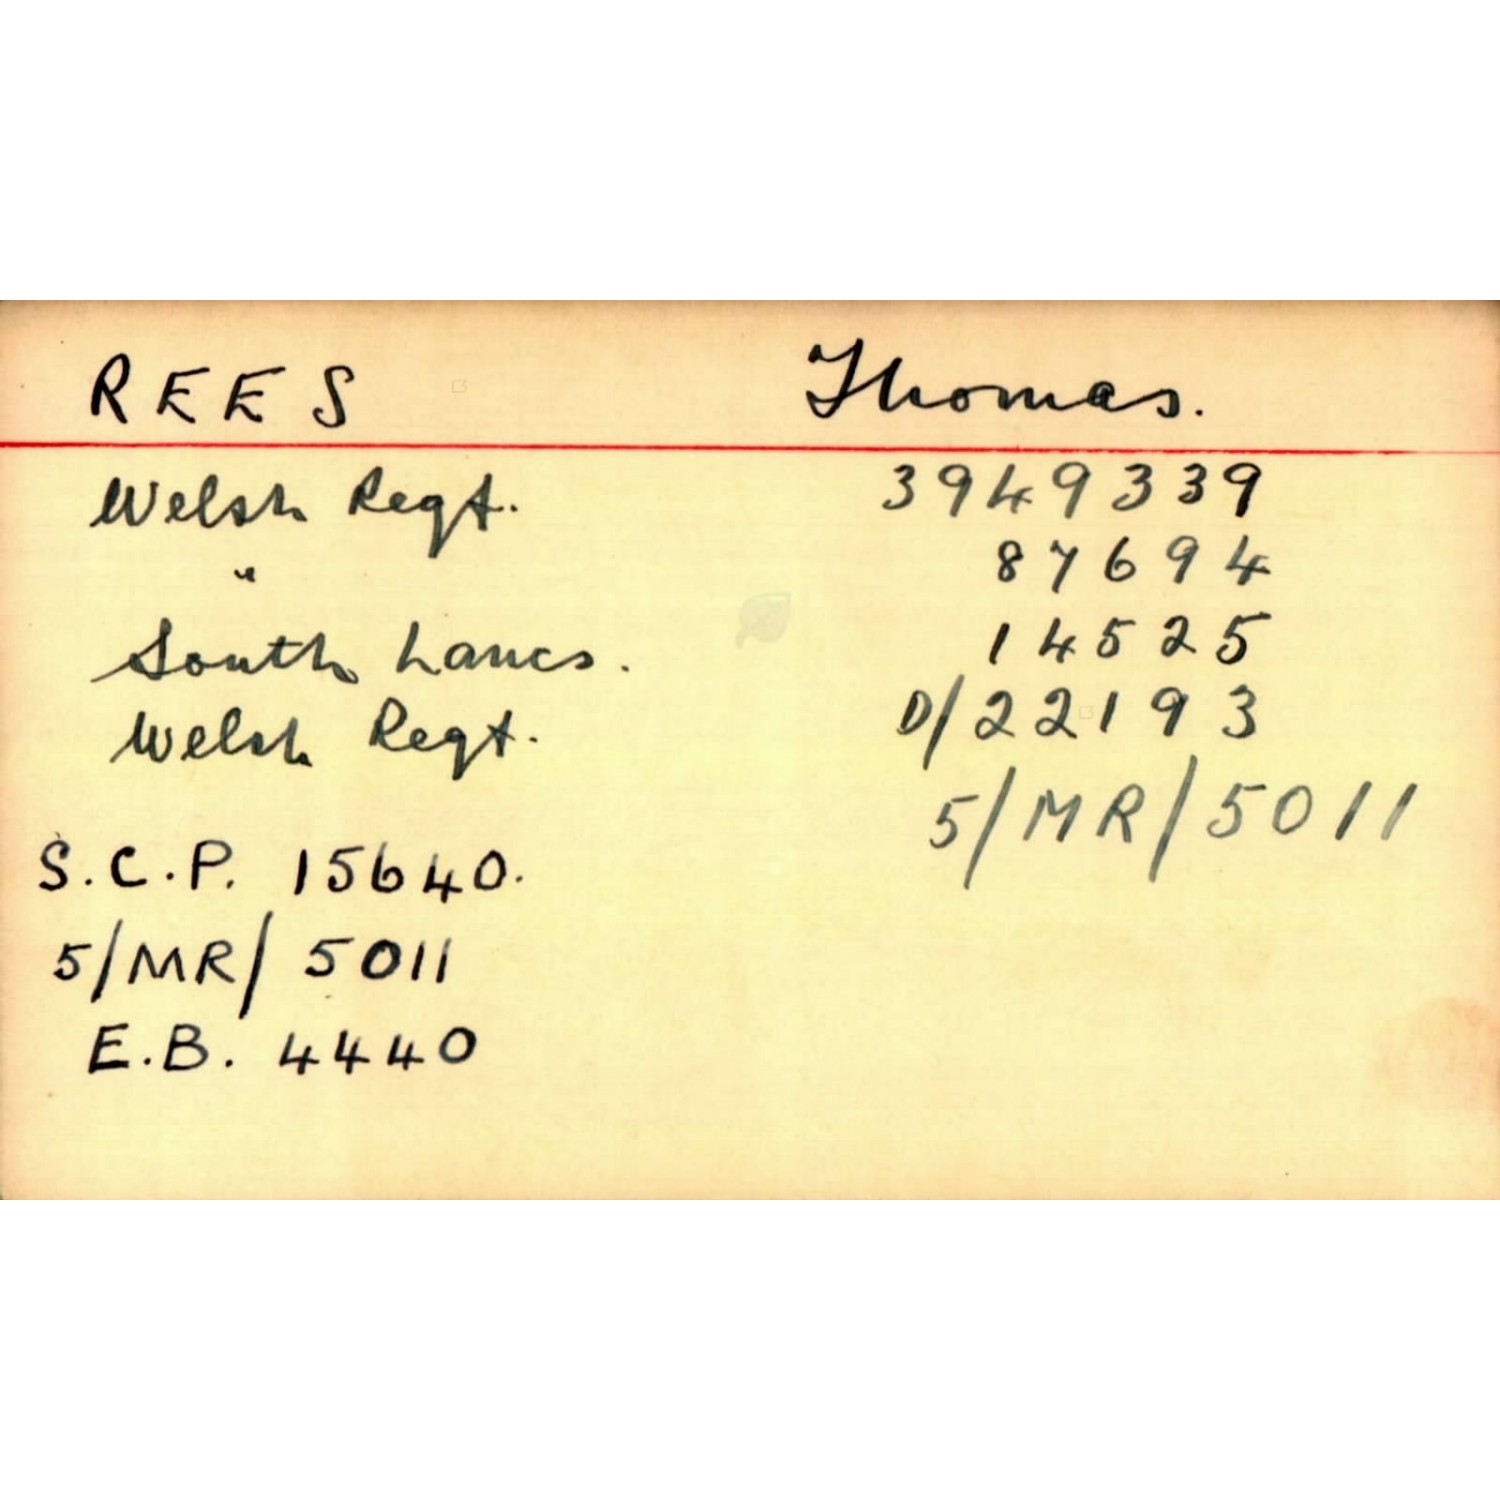 REES Thomas.
Welsh Regt. 3949339
" 87694
South Lancs. 14525
Welsh Regt. D/22193
5/MR/5011
S.C.P. 15640.
5/MR/ 5011
E.B. 4440